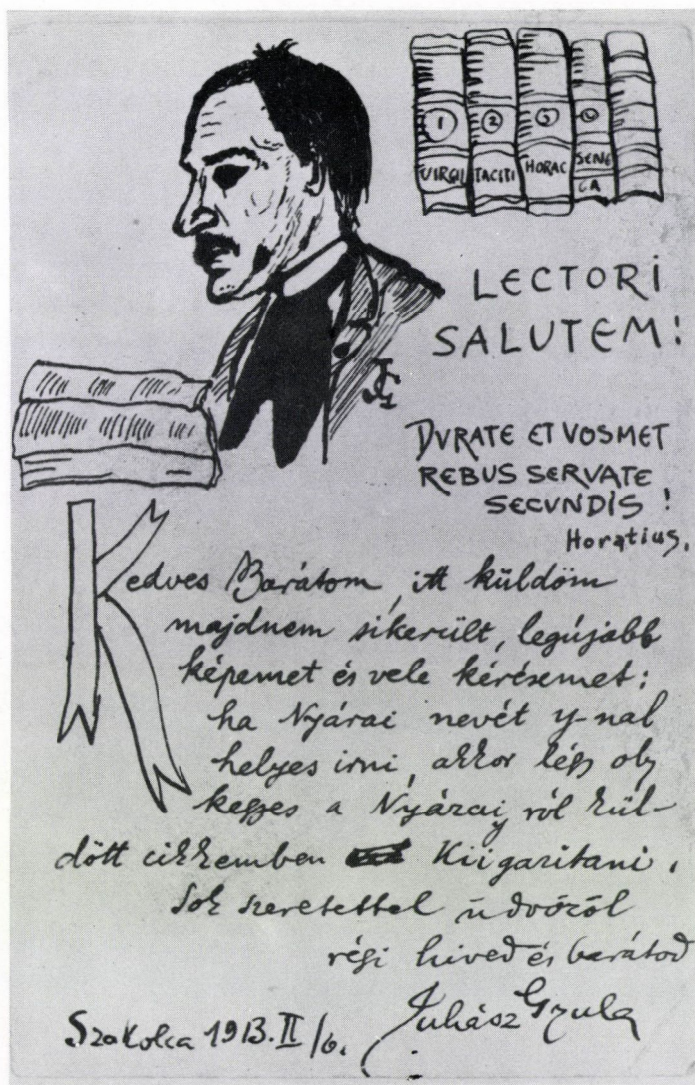 1 2 3
VIRGIL TACITI HORAC SENE
CA
LECTORI
SALUTEM!
DVRATE ET VOSMET
REBUS SERVATE
SECVNDIS!
Horatius.
Kedves Barátom, itt küldöm
majdnem sikerült, legújabb
képemet és vele kérésemet:
ha Nyárai nevét y-nal
helyes irni, akkor légy oly
kegyes a Nyárayról kül-
dött cikkemben kiigazitani.
Sok szeretettel üdvözöl
régi hived és barátod
Juhász Gyula
Szakolca 1913. II/6.